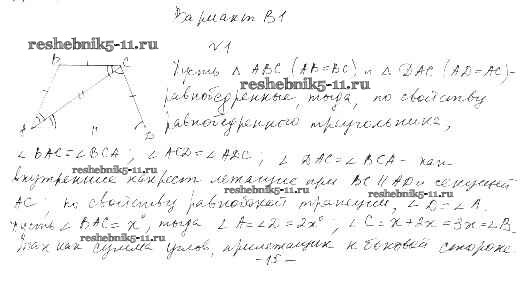 Вариант В1
№1
reshebnik5-11.ru
Пусть △ ABC (AB=BC) и △ DAC (AD=AC)-
reshebnik5-11.ru
B C
равнобедренные, тогда, по свойству
равнобедренного треугольника,
A D
∠ BAC = ∠ BCA; ∠ ACD = ∠ ADC, ∠ DAC = ∠ BCA - как
reshebnik5-11.ru
внутренние накрест лежащие при BC || AD и секущей
reshebnik5-11.ru
AC, по свойству равнобокой трапеции, ∠ D = ∠ A.
reshebnik5-11.ru
Пусть ∠ BAC = x°, тогда ∠ A = ∠ D = 2x°, ∠ C = x + 2x = 3x = ∠ B.
reshebnik5-11.ru
Так как сумма углов, прилежащих к боковой стороне
- 15 -